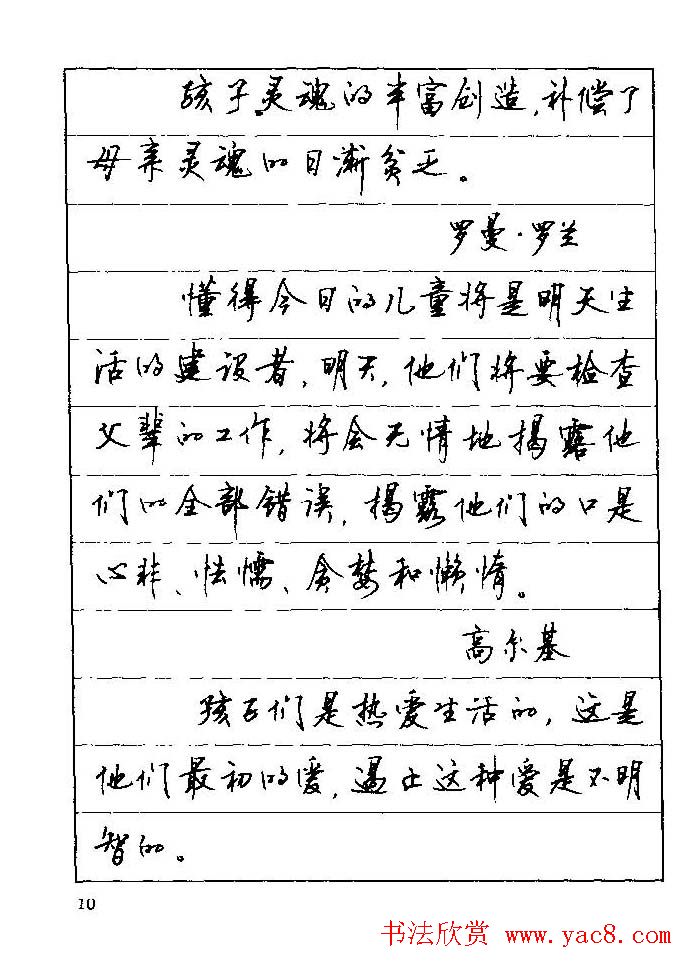 孩子灵魂的丰富创造,补偿了
母亲灵魂的日渐贫乏。
罗曼·罗兰
懂得今日的儿童将是明天生
活的建设者,明天,他们将要检查
父辈的工作,将会无情地揭露他
们的全部错误,揭露他们的口是
心非、怯懦、贪婪和懒惰。
高尔基
孩子们是热爱生活的,这是
他们最初的爱,遏止这种爱是不明
智的。
10
书法欣赏 www.yac8.com